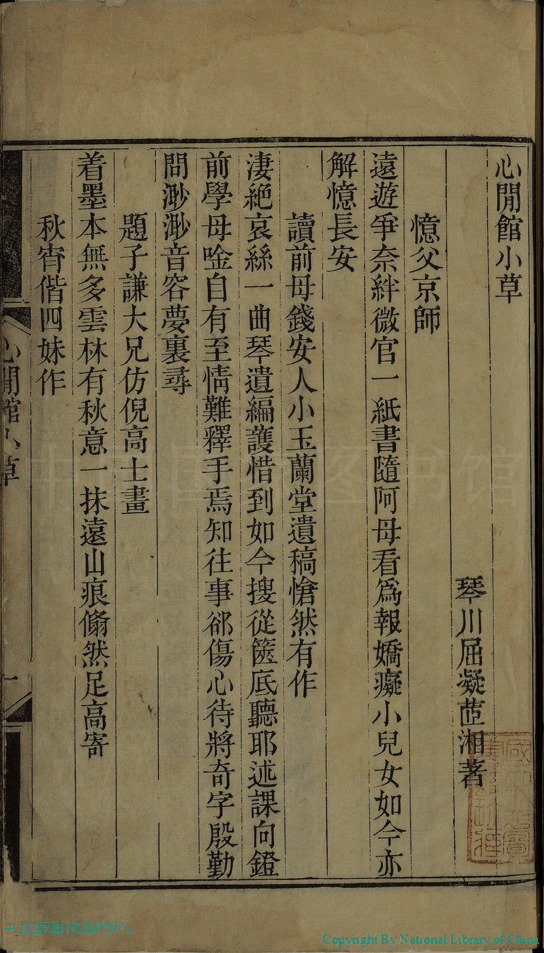 心閒館小草
琴川屈凝茝湘著
憶父京師
遠遊爭奈絆微官一紙書隨阿母看爲報嬌癡小兒女如今亦
解憶長安
讀前母錢安人小玉蘭堂遺稿愴然有作
淒絶哀絲一曲琴遺編護惜到如今搜從篋底聽耶述課向鐙
前學母唫自有至情難釋手焉知往事郤傷心待將奇字殷勤
問渺渺音容夢裏尋
題子謙大兄仿倪高士畫
着墨本無多雲林有秋意一抹遠山痕翛然足高寄
秋宵偕四妹作
心閒館小草
一
Copyright By National Library of China